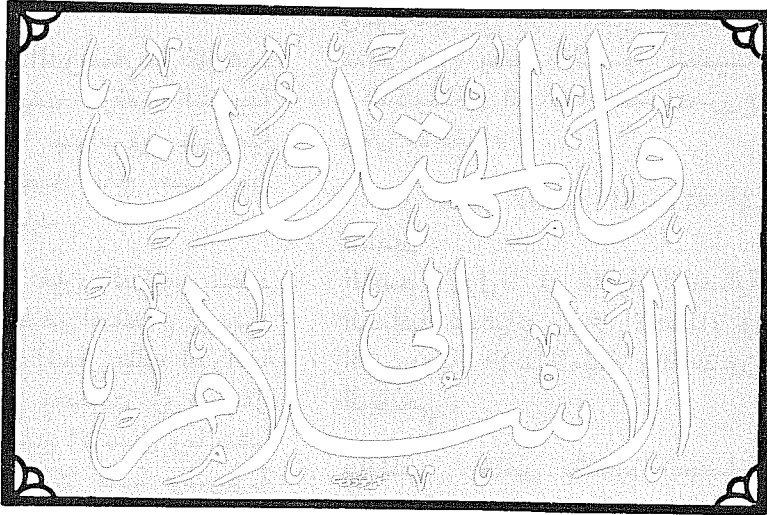 وَالمهتدُون
إلى
الإسلام